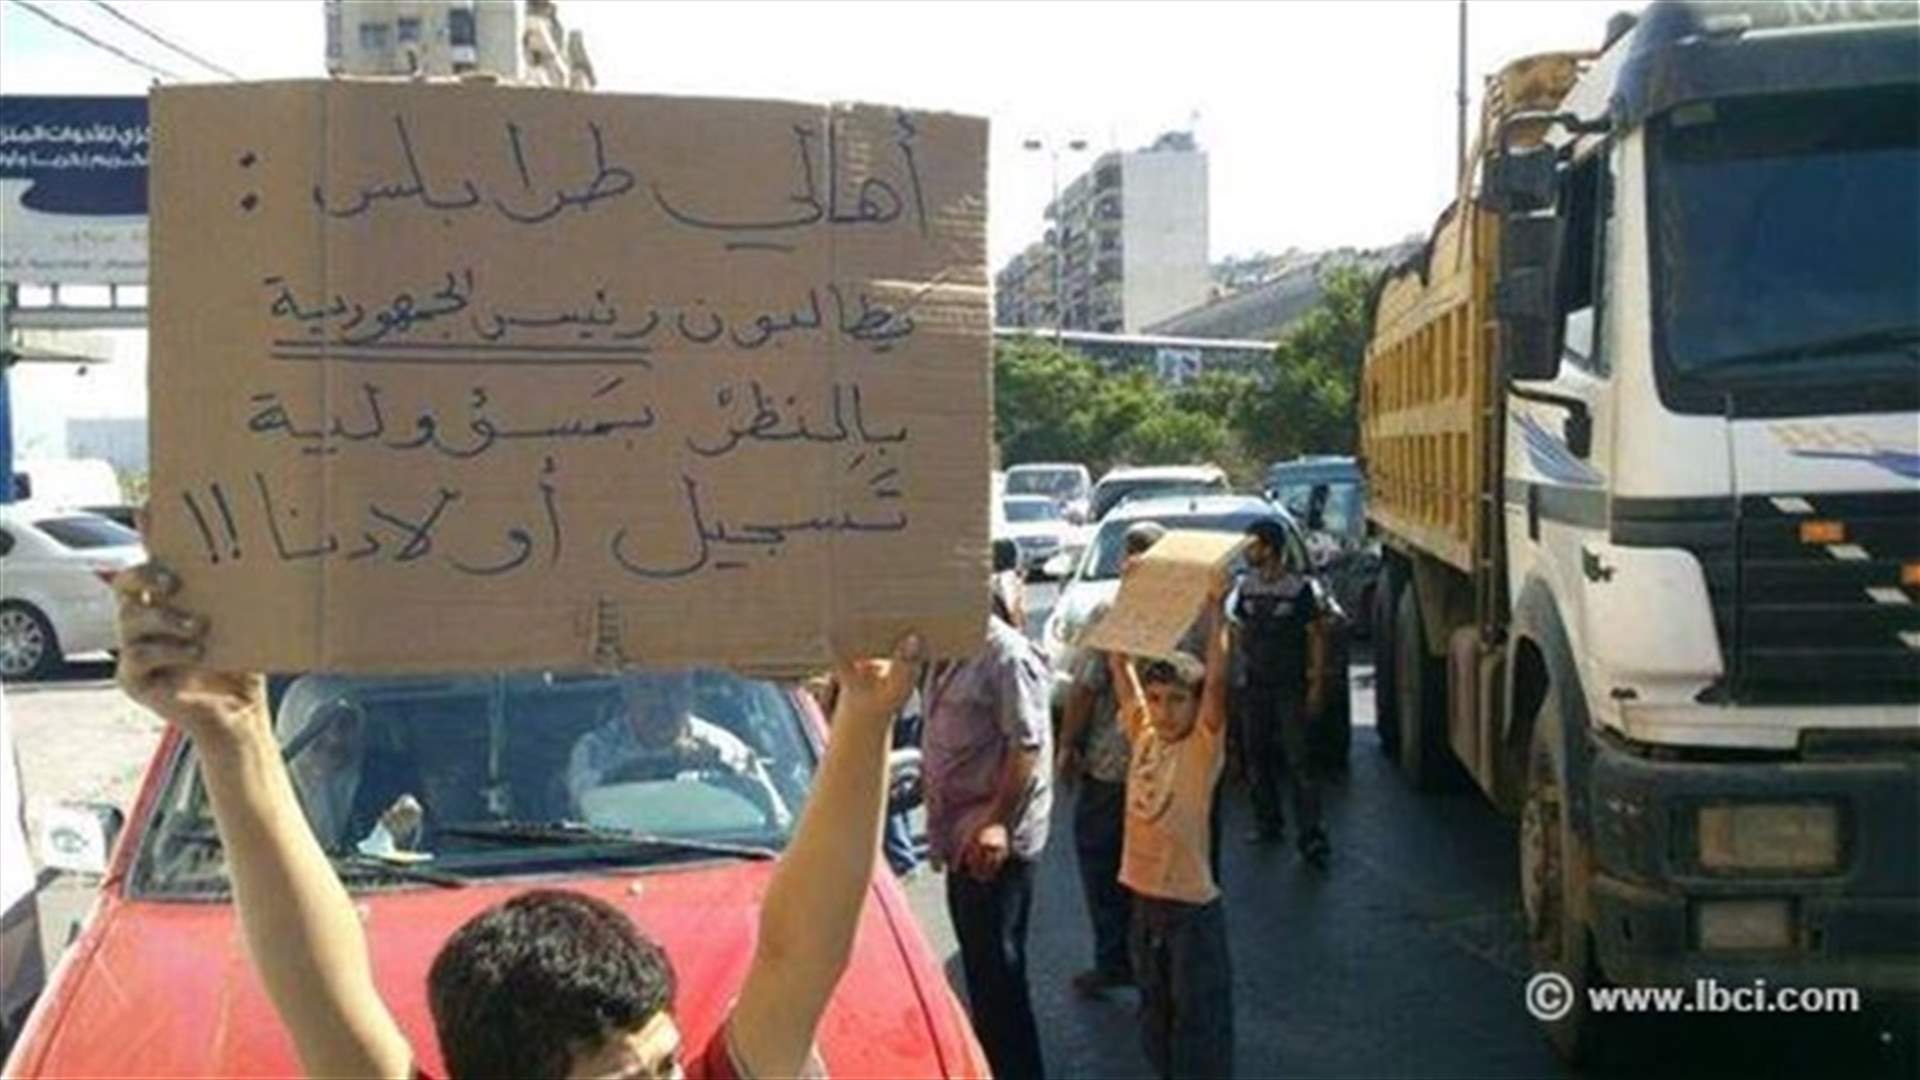 أهالي طرابلس :
يطالبون رئيس الجمهورية
بالنظرْ بمَسؤولية
تَسجيل أولادنا !!
© www.lbci.com